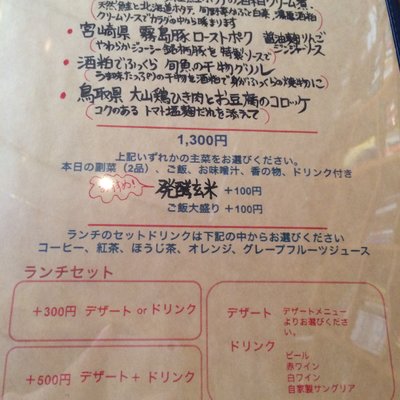 天然鮭と北海道ホタテ、旬野菜など
クリームソースでカラダの中から暖まります
• 宮崎県 霧島豚ローストポーク 醤油麹りんごジンジャーソース
やわらかジューシー銘柄豚を特製ソースで
• 酒粕でふっくら 旬魚の干物グリル
うま味たっぷりの干物を酒粕で身がふっくらの焼物に
• 鳥取県 大山鶏ひき肉とお豆腐のコロッケ
コクのある トマト塩麹だれを添えて
1,300円
上記いずれかの主菜をお選びください。
本日の副菜（2品）、ご飯、お味噌汁、香の物、ドリンク付き
おすすめ! 発酵玄米 +100円
ご飯大盛り +100円
ランチのセットドリンクは下記の中からお選びください
コーヒー、紅茶、ほうじ茶、オレンジ、グレープフルーツジュース
ランチセット
+300円 デザート or ドリンク
+500円 デザート + ドリンク
デザート デザートメニュー
よりお選びくださ
い。
ドリンク
ビール
赤ワイン
白ワイン
自家製サングリア